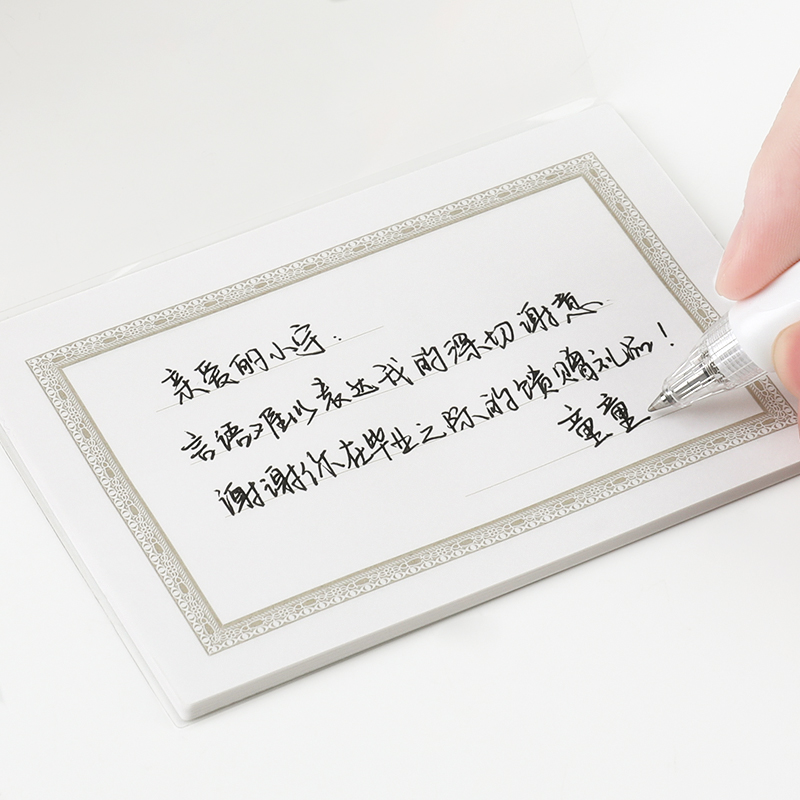 亲爱的小宇:
言语难以表达我的深切谢意
谢谢你在毕业之际的馈赠礼品!
童童